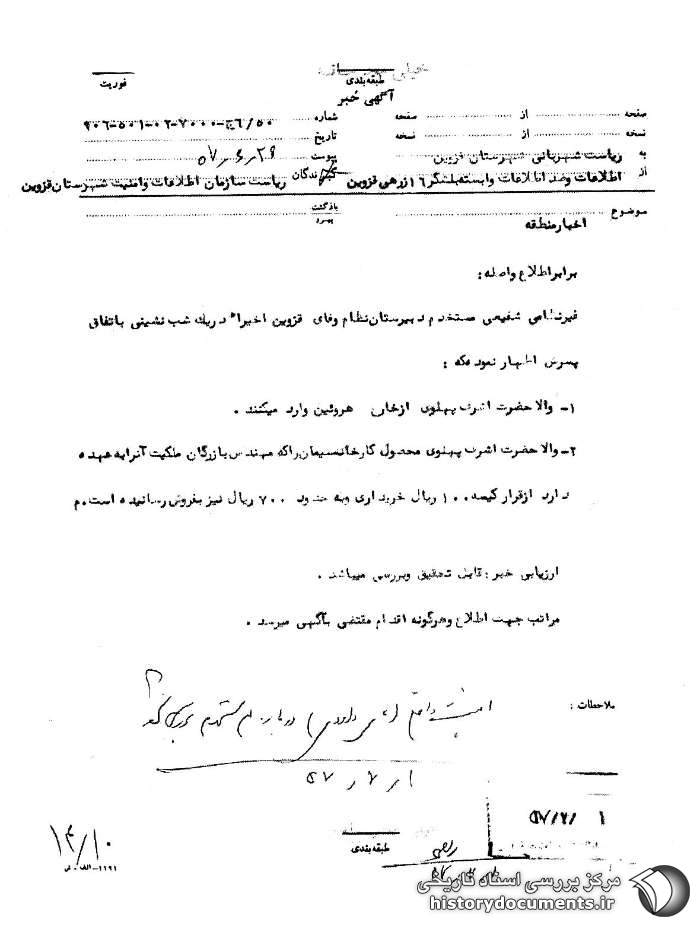 خیلی
طبقه‌بندی
فوریت
آگهی خبر
صفحه از صفحه شماره ۹۰۶-۵۰۱-۰۲-۷۰۰۰-۶چ/۵۰
نسخه از نسخه تاریخ
به ریاست شهربانی شهرستان قزوین پیوست ۵۷/۶/۲۶
از اطلاعات وضد اطلاعات وابسته بلشگر ۱۶ زرهی قزوین گیرندگان ریاست سازمان اطلاعات وامنیت شهرستان قزوین
موضوع اخبار منطقه بازگشت
پیرو
برابر اطلاع واصله :
غیرنظامی شفیعی مستخدم دبیرستان نظام وفای قزوین اخیرا" دریک شب نشینی باتفاق
پسرش اظهار نموده که :
۱- والا حضرت اشرف پهلوی ازخارج هروئین وارد میکنند .
۲- والا حضرت اشرف پهلوی محصول کارخانه سیمان راکه مهندس بازرگان ملکیت آنرابه عهده
دارد ازقرار کیسه ۱۰۰ ریال خریداری وبه حدود ۷۰۰ ریال نیز بفروش رسانیده است.م
ارزیابی خبر : قابل تحقیق وبررسی میباشد .
مراتب جهت اطلاع وهرگونه اقدام مقتضی بآگهی میرسد .
ملاحظات :
۵۷/۷/۱
۵۷/۷/ ۱
طبقه‌بندی
۱۴/۱۰
۱۱۹۱-الف.ش
مرکز بررسی اسناد تاریخی
historydocuments.ir